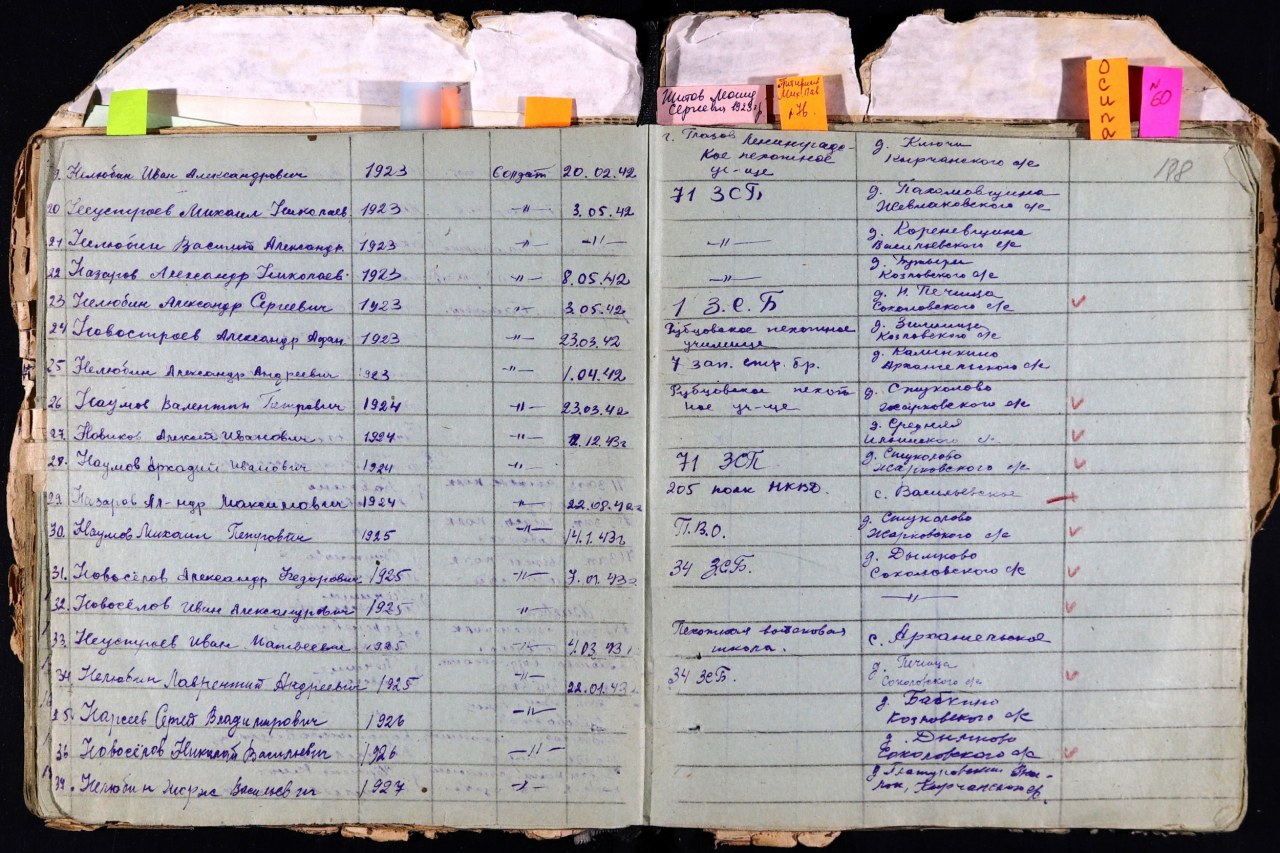 Шитов Леонид
Сергеевич 1923 г
Мих Пав
Осипа
N 60
198
г. Глазов Ленинградс-
кое пехотное
уч-ще
д. Ключи
Кырчанского с/с
19. Нелюбин Иван Александрович 1923 Солдат 20.02.42
20 Неустроев Михаил Николаев 1923 -"- 3.05.42 71 ЗСП д. Пахомовщина
Жевлаковского с/с
21 Нелюбин Василий Александр. 1923 -"- -"- -"- д. Кореневщина
Васильевского с/с
22 Назаров Александр Николаев. 1923 -"- 8.05.42 -"-
Козловского с/с
23 Нелюбин Александр Сергеевич 1923 -"- 3.05.42 1 З.С.Б д. Н. Печища
Соколовского с/с
24 Новостроев Александр Афан. 1923 -"- 23.03.42 Рубцовское пехотное
училище
Козловского с/с
25 Нелюбин Александр Андреевич 1923 -"- 1.04.42 7 зап. стр. бр. д. Калинкино
Архангельского с/с
26 Наумов Валентин Петрович 1924 -"- 23.03.42 Рубцовское пехот-
ное уч-ще д. Стуколово
Жарковского с/с
27. Новиков Алексей Иванович 1924 -"- 12.43г д. Средняя
Ильинского с/с
28. Наумов Аркадий Иванович 1924 -"- 71 ЗСП д. Стуколово
Жарковского с/с
29. Назаров Ал-ндр Максимович 1924 -"- 22.08.42г 205 полк НКВД. с. Васильевское
30. Наумов Михаил Петрович 1925 -"- 14.1.43г П.В.О. д. Стуколово
Жарковского с/с
31. Новосёлов Александр Федорович 1925 -"- 7.01.43г 34 ЗСБ. д. Дымково
Соколовского с/с
32. Новосёлов Иван Александрович 1925 -"- -"-
33. Неустроев Иван Матвеевич 1925 -"- 4.03.43г Пехотная войсковая
школа. с. Архангельское
34 Нелюбин Лаврентий Андреевич 1925 -"- 22.01.43г 34 ЗСБ. д. Печища
Соколовского с/с
35. Сергей Владимирович 1926 -"- д. Бабкино
Козловского с/с
36 Новосёлов Николай Васильевич 1926 -"- д. Дымково
Соколовского с/с
37. Нелюбин Васильевич 1927 -"-
Кырчанского с/с.